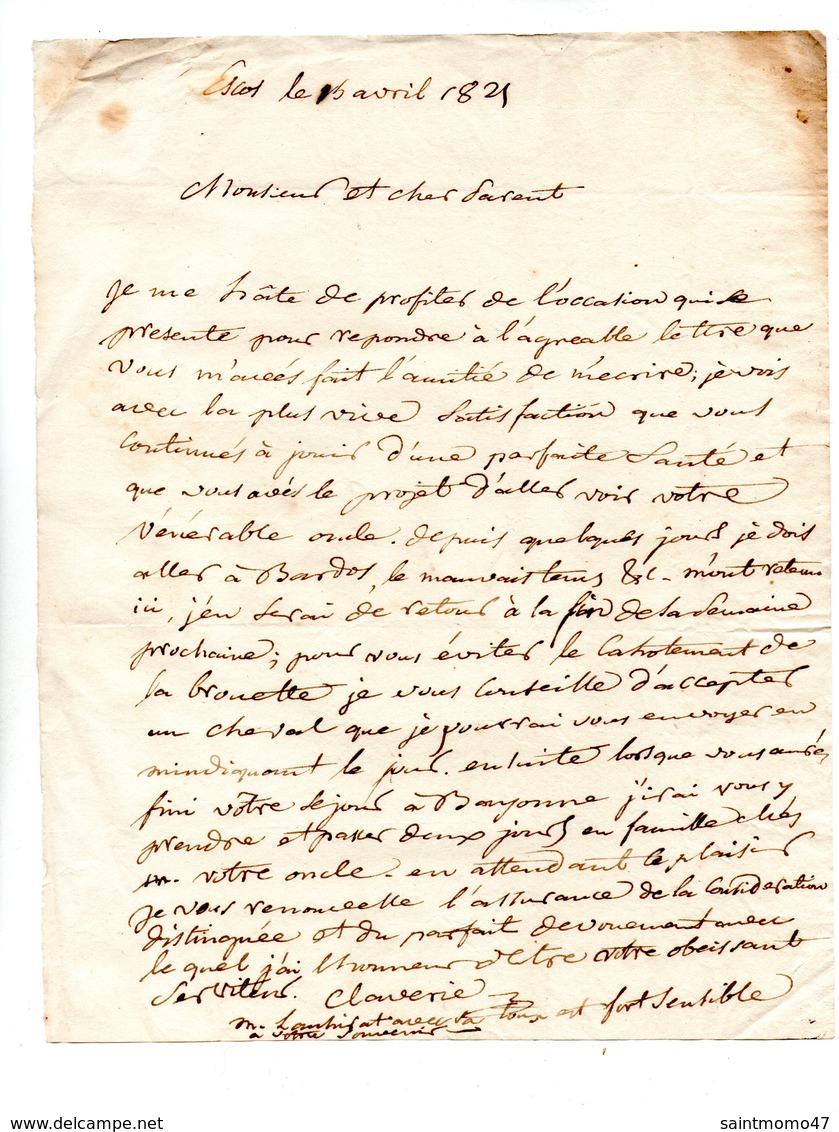 Escos le 15 avril 1821
Monsieur et cher Parent
je me hâte de profiter de l'occasion qui se
presente pour repondre à l'agreable lettre que
vous m'avés fait l'amitié de m'ecrire; je vois
avec la plus vive satisfaction que vous
continués à jouir d'une parfaite santé et
que vous avés le projet d'aller voir votre
vénérable oncle. depuis quelques jours je dois
aller à Bardos, le mauvais tems &c - m'ont retenu
ici, j'en serai de retour à la fin de la semaine
prochaine; pour vous éviter le cahotement de
la brouette je vous conseille d'accepter
un cheval que je pourrai vous envoyer en
m'indiquant le jour. ensuite lorsque vous aurés
fini votre séjour à Bayonne j'irai vous y
prendre et passer deux jours en famille chés
m. votre oncle - en attendant le plaisir
je vous renouvelle l'assurance de la consideration
distinguée et du parfait devouement avec
lequel j'ai l'honneur d'être votre obeissant
serviteur. Claverie
m. avec sa toux est fort sensible
à votre souvenir
saintmomo47